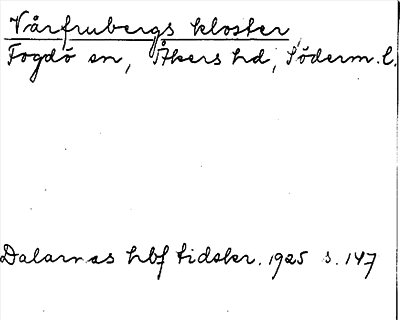 Vårfrubergs kloster
Fogdö sn, Åkers hd, Söderm. l.
Dalarnas hbf tidskr. 1925 s. 147